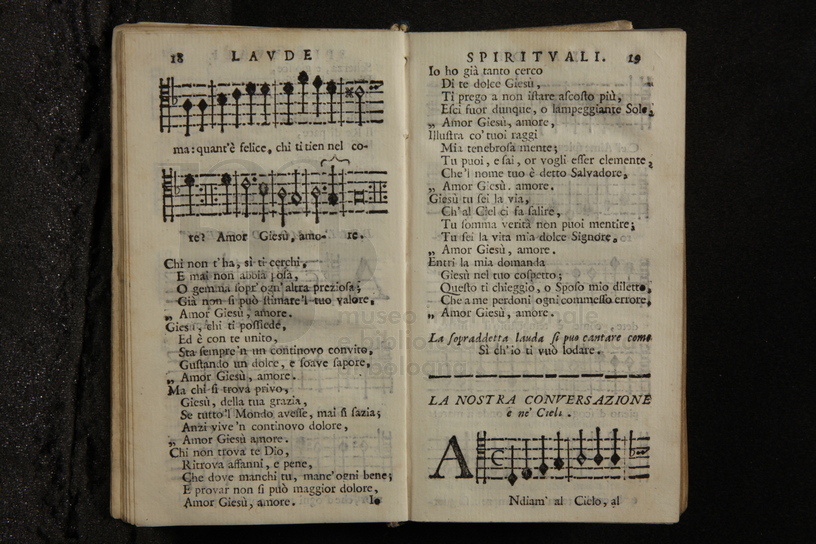 18 LAVDE
ma: quant'è felice, chi ti tien nel co-
re? Amor Giesù, amo- re.
Chi non t'ha, sì ti cerchi,
E mai non abbia posa,
O gemma sopr'ogn'altra preziosa;
Già non si può stimare'l tuo valore,
„ Amor Giesù, amore.
Giesù, chi ti possiede,
Ed è con te unito,
Sta sempre'n un continovo convito,
Gustando un dolce, e soave sapore,
„ Amor Giesù, amore.
Ma chi si trova privo,
Giesù, della tua grazia,
Se tutto'l Mondo avesse, mai si sazia;
Anzi vive'n continovo dolore,
„ Amor Giesù amore.
Chi non trova te Dio,
Ritrova affanni, e pene,
Che dove manchi tu, manc'ogni bene;
E provar non si può maggior dolore,
Amor Giesù, amore. Io
SPIRITVALI. 19
Io ho già tanto cerco
Di te dolce Giesù,
Ti prego a non istare ascosto più,
Esci fuor dunque, o lampeggiante Sole,
„ Amor Giesù, amore,
Illustra co'tuoi raggi
Mia tenebrosa mente;
Tu puoi, e sai, or vogli esser clemente,
Che'l nome tuo è detto Salvadore,
„ Amor Giesù. amore.
Giesù tu sei la via,
Ch'al Ciel ci fa salire,
Tu somma verità non puoi mentire;
Tu sei la vita mia dolce Signore,
„ Amor Giesù, amore.
Entri la mia domanda
Giesù nel tuo cospetto;
Questo ti chieggio, o Sposo mio diletto,
Che a me perdoni ogni commesso errore,
„ Amor Giesù, amore.
La sopraddetta lauda si può cantare come
Sì ch'io ti vuò lodare.
LA NOSTRA CONVERSAZIONE
è ne' Cieli.
A
Ndiam' al Cielo, al